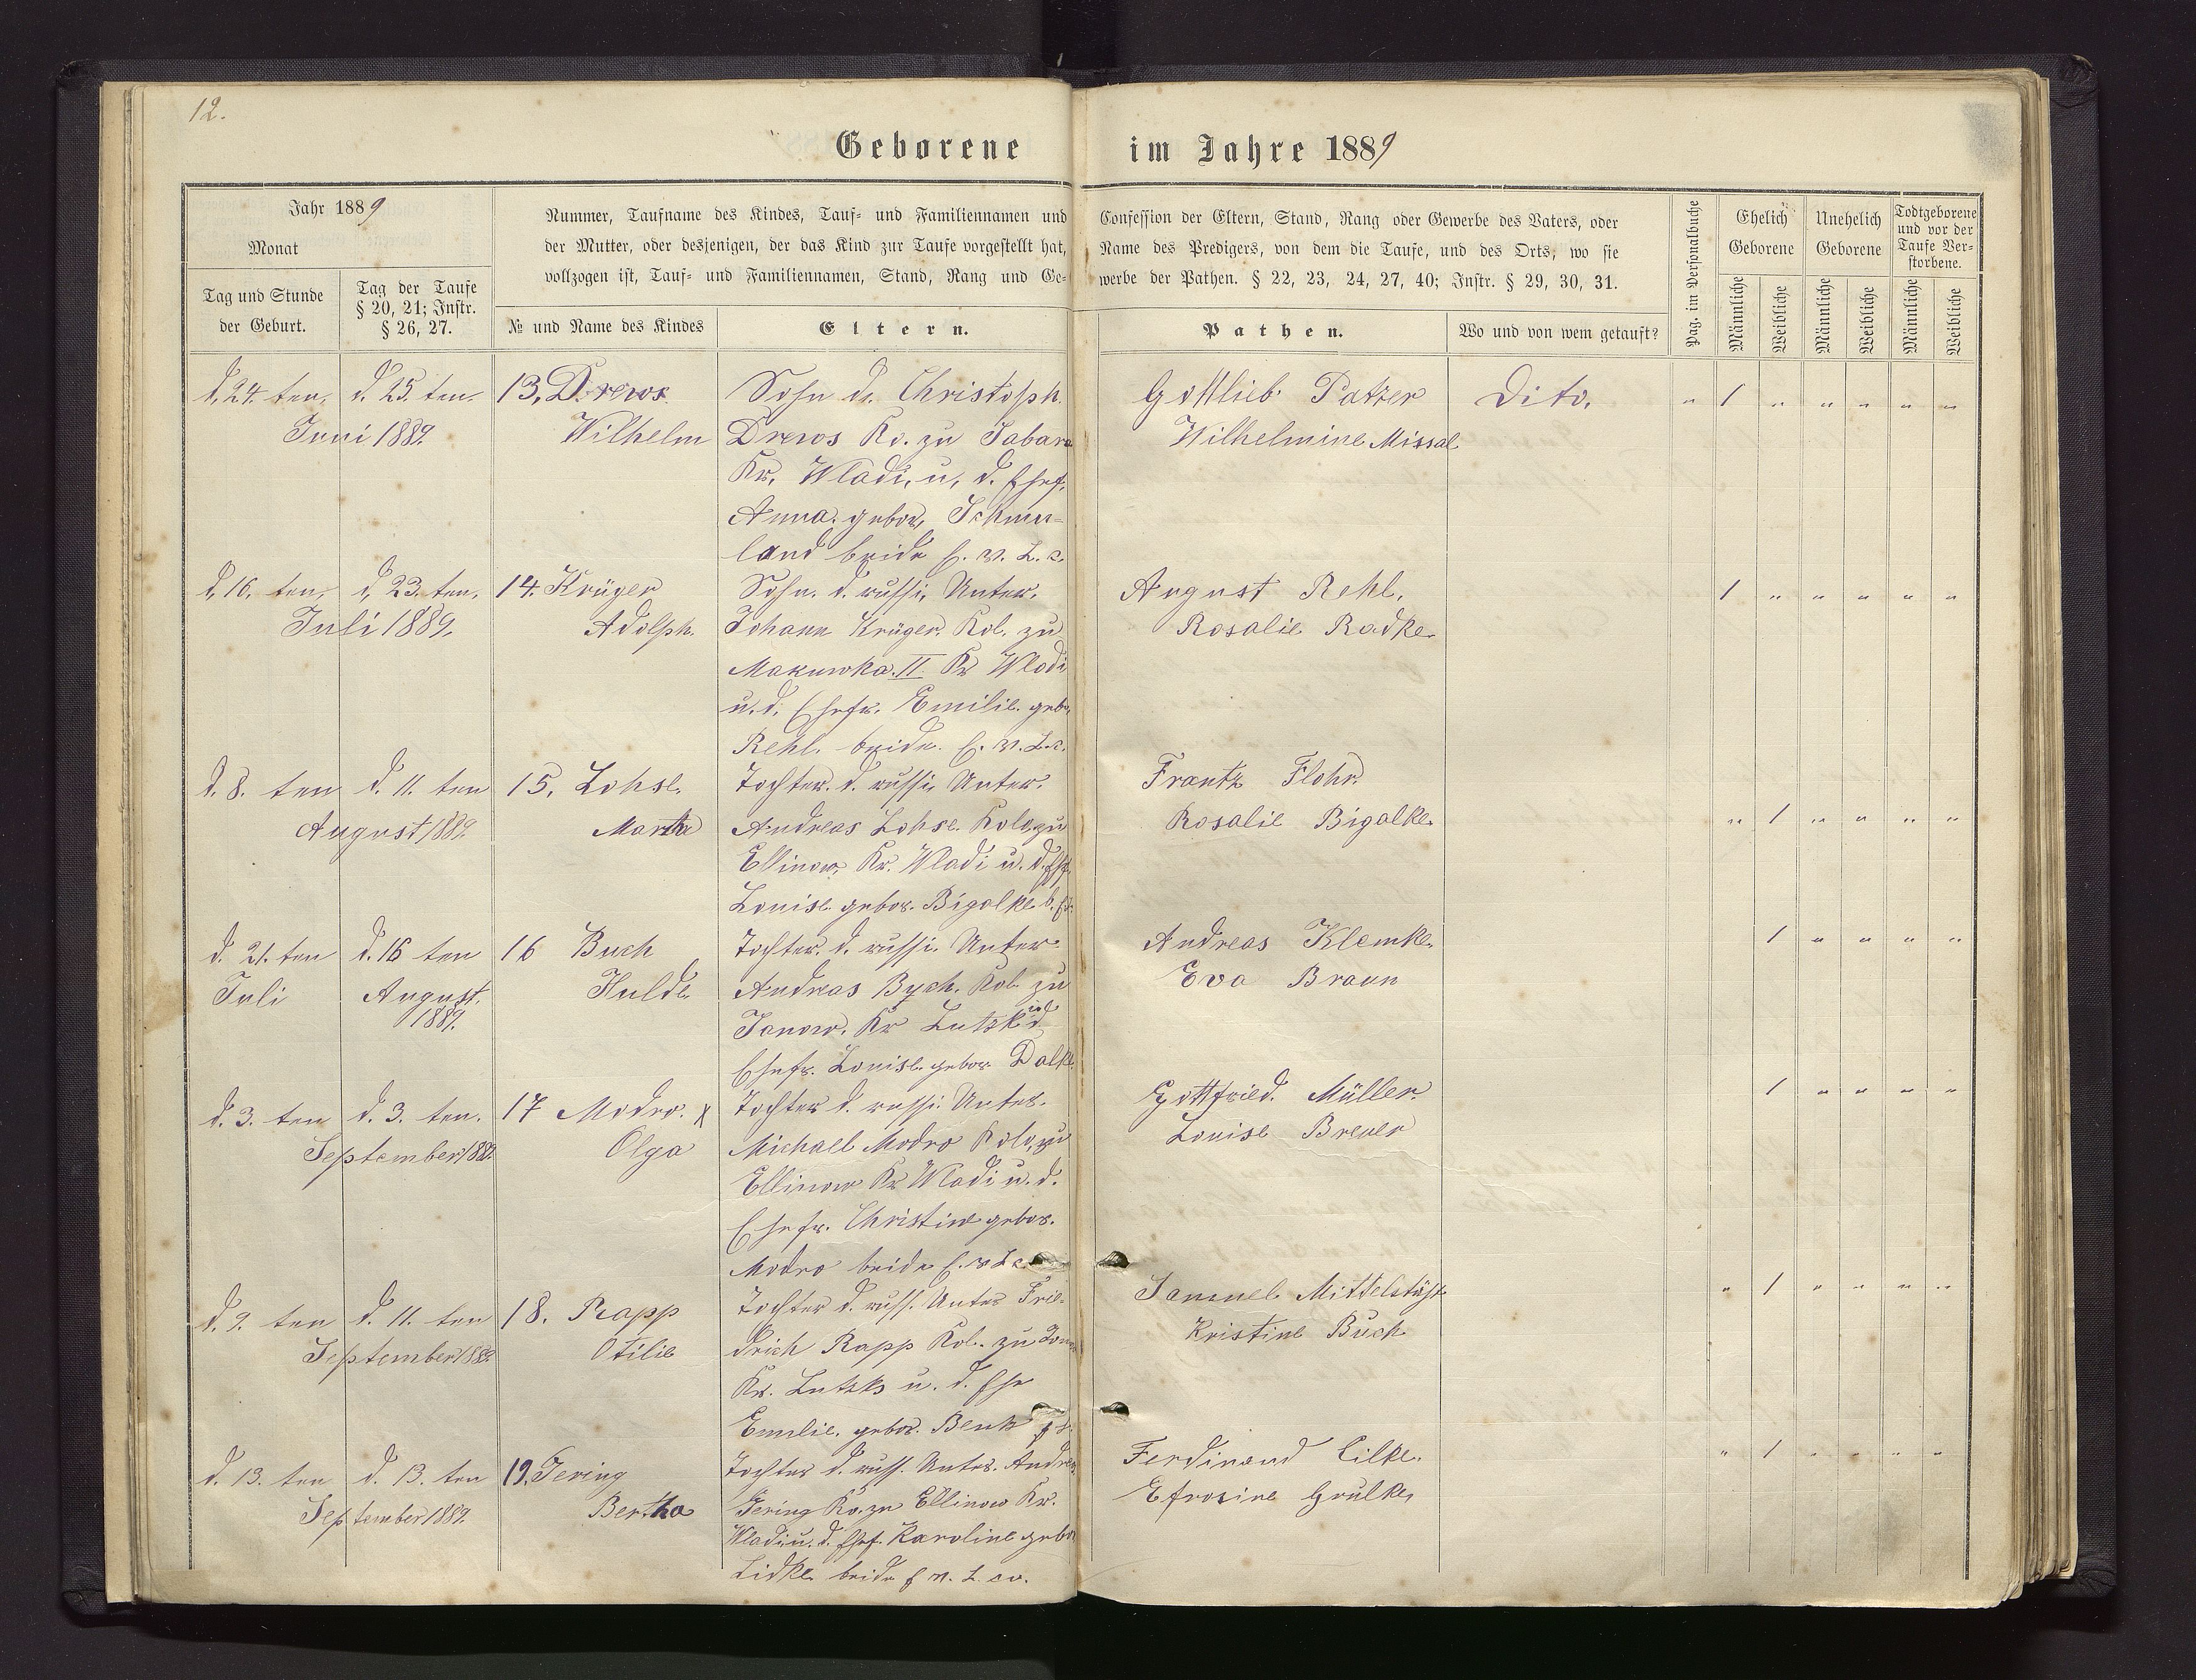 12.
Geborene im Jahre 1889
Jahr 1889
Monat
Tag und Stunde
der Geburt.
Tag der Taufe
§ 20, 21; Instr.
§ 26, 27.
Nummer, Taufname des Kindes, Tauf- und Familiennamen und
der Mutter, oder desjenigen, der das Kind zur Taufe vorgestellt hat,
vollzogen ist, Tauf- und Familiennamen, Stand, Rang und Ge-
№ und Name des Kindes
Eltern.
Confession der Eltern, Stand, Rang oder Gewerbe des Vaters, oder
Name des Predigers, von dem die Taufe, und des Orts, wo sie
werbe der Pathen. § 22, 23, 24, 27, 40; Instr. § 29, 30, 31.
Pathen.
Wo und von wem getauft?
Pag. im Personalbuche
Ehelich
Geborene
Unehelich
Geborene
Todtgeborene
und vor der
Taufe Ver-
storbene.
Männliche
Weibliche
Männliche
Weibliche
Männliche
Weibliche
d. 24. ten. d. 25. ten.
Juni 1889.
13. Drews
Wilhelm
Sohn d. Christoph
Drews Ko. zu
Kr. Wladi. u. d. Ehef.
Anna. gebor.
land beide
Gottlieb Patzer
Wilhelmine Missal
Dito.
" 1 " " " " "
d. 16. ten. d. 23. ten.
Juli 1889.
14. Krüger
Adolph.
Sohn. d. russi. Unter.
Johann Krüger. Kol. zu
Makuwka. II. Kr Wladi
u. d. Ehefr. Emilie. gebo.
Rehl. beide.
August Rehl.
Rosalie Radke.
1 " " " " "
d. 8. ten d. 11. ten
August 1889
15. Lohse.
Martha
Tochter. d. russi. Unter.
Andreas Lohse. Kolo. zu
Ellinow. Kr. Wladi u. d. Ehf.
Louise. gebor. Bigalke.
Frantz Flohr.
Rosalie Bigalke.
" 1 " " " "
d. 21. ten d. 16 ten
Juli August.
1889.
16 Buch
Hulde.
Tochter. d. russi. Unter.
Andreas Buch. Kol. zu
Janow. Kr Lutzk ud
Ehefr. Louise. gebor. Dalke.
Andreas Klemke.
Eva Braun
1 " " " "
d. 3. ten d. 3. ten.
September 1889.
17 Modro. x
Olga
Tochter d. russi. Unter.
Michael Modro Kolo. zu
Ellinow Kr Wladi u. d.
Ehefr. Christine gebor.
Modro beide
Gottfried. Müller
Louise Breuer
1 " " " "
d. 9. ten d. 11. ten
September 1889.
18. Rapp
Otilie
Tochter d. russ. Unter Frie-
drich Rapp Kol. zu
Kr. Lutzks u. d. Ehe
Emilie. gebor. Benk
Samuel. Mittelstäst
Kristine Buch
" 1 " " " "
d. 13. ten d. 13. ten
September 1889.
19. Jering
Bertha
Tochter d. russ. Unter. Andrea
Jering Ko. zu Ellinow Kr.
Wladi u. d. Ehef. Karoline gebor
Lidke beide
Ferdinand Cilke.
Efrosine Grulke,
" 1 " " " "